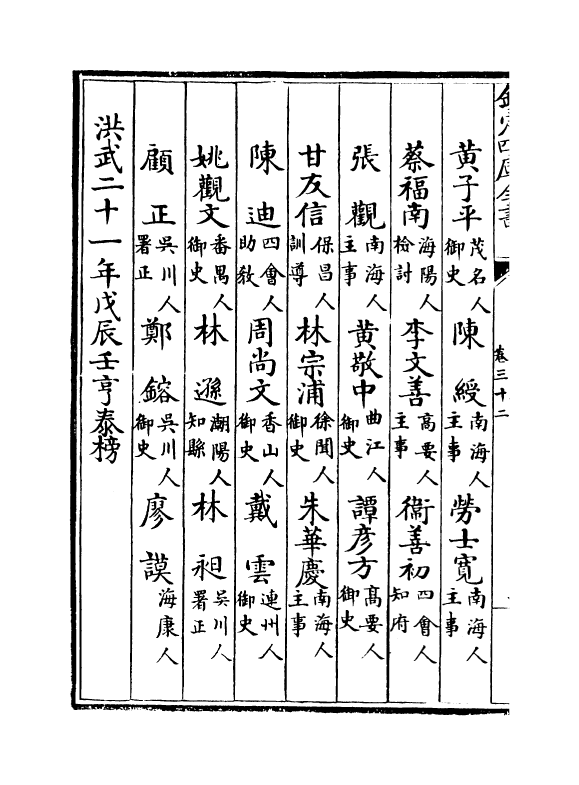 欽定四庫全書
卷三十二
黄子平茂名人御史 陳綬南海人主事 勞士寛南海人主事
蔡福南海陽人檢討 李文善高要人主事 衞善初四會人知府
張觀南海人主事 黄敬中曲江人御史 譚彦方髙要人御史
甘友信保昌人訓導 林宗浦徐聞人御史 朱華慶南海人主事
陳迪四會人助敎 周尚文香山人御史 戴雲連州人御史
姚觀文番禺人御史 林遜潮陽人知縣 林昶吳川人署正
顧正吳川人署正 鄭鎔吳川人御史 廖謨海康人
洪武二十一年戊辰壬亨泰榜